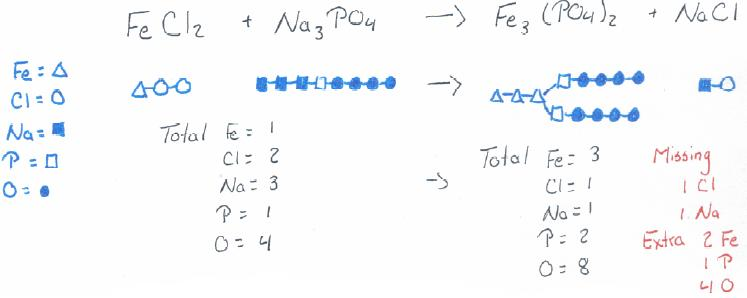 FeCl2 + Na3PO4 —> Fe3(PO4)2 + NaCl
Fe = △
Cl = ○
Na = ■
P = □
O = ●
—>
Total Fe = 1
Cl = 2
Na = 3
P = 1
O = 4
->
Total Fe = 3
Cl = 1
Na = 1
P = 2
O = 8
Missing
1 Cl
1 Na
Extra 2 Fe
1 P
4 O